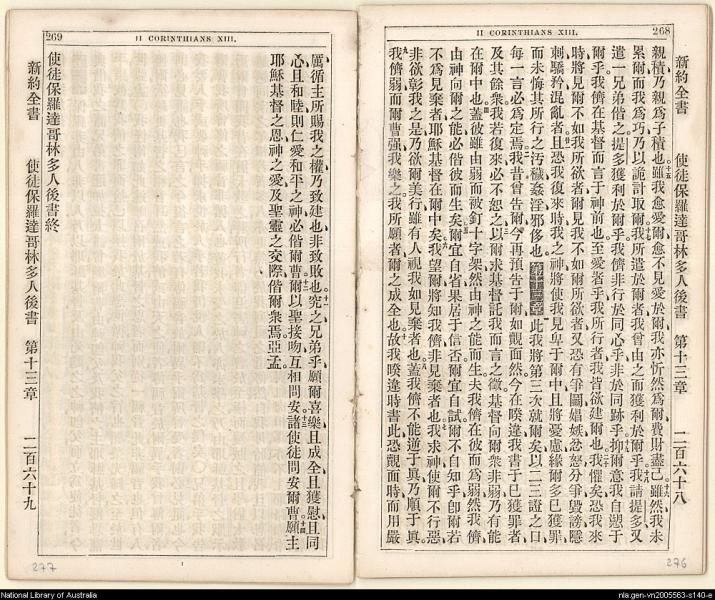 268
II CORINTHIANS XIII.
新約全書 使徒保羅達哥林多人後書 第十三章 二百六十八
親積乃親爲子積也雖我愈愛爾愈不見愛於爾我亦忻然爲爾費財盡己雖然我未
累爾而我爲巧乃以詭計取爾我所遣於爾者我曾由之而獲利於爾乎我請提多又
遣一兄弟偕之提多獲利於爾乎我儕非行於同心乎非於同跡乎抑爾意我自愬于
爾乎我儕在基督而言于神前也至愛者乎我所行者我皆欲建爾也我懼矣恐我來
時將見爾不如我所欲者爾見我不如爾所欲者又恐有爭鬪娼嫉忿怒分爭毀謗隱
刺驕矜混亂者且恐我復來時我之神將使我見卑于爾中且將憂慮緣爾多已獲罪
而未悔其所行之汚穢姦淫邪侈也第十三章此我將第三次就爾矣以二三證之口
每一言必爲定焉我昔曾告爾今再預告于爾如覿面然今在暌違我書于已獲罪者
及其餘衆我若復來必不恕之以爾求基督託我而言之徵基督向爾衆非弱乃有能
在爾中也蓋彼雖由弱而被釘十字架然由神之能而生夫我儕在彼而爲弱然我儕
由神向爾之能必偕彼而生矣爾宜自省果居于信否爾宜自試爾不自知乎卽爾若
不爲見棄者耶穌基督在爾中矣我望爾將知我儕非見棄者也我求神使爾不行惡
非欲彰我之是乃欲爾美行雖有人視我如見棄者也蓋我儕不能逆于眞乃順于眞
我儕弱而爾曹强我樂之我所願者爾之成全也故我暌違時書此恐覿面時而用嚴
276
269
II CORINTHIANS XIII.
厲循主所賜我之權乃致建也非致敗也究之兄弟乎願爾喜樂且成全且獲慰且同
心且和睦則仁愛和平之神必偕爾曹爾以聖接吻互相問安諸使徒問安爾曹願主
耶穌基督之恩神之愛及聖靈之交際偕爾衆焉亞孟
使徒保羅達哥林多人後書終
新約全書 使徒保羅達哥林多人後書 第十三章 二百六十九
277
National Library of Australia
nla.gen-vn2005563-s140-e